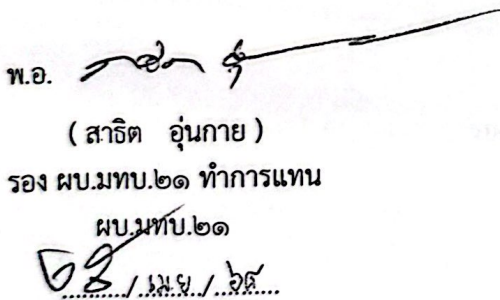 พ.อ.
( สาธิต อุ่นกาย )
รอง ผบ.มทบ.๒๑ ทำการแทน
ผบ.มทบ.๒๑
/ เม.ย. /